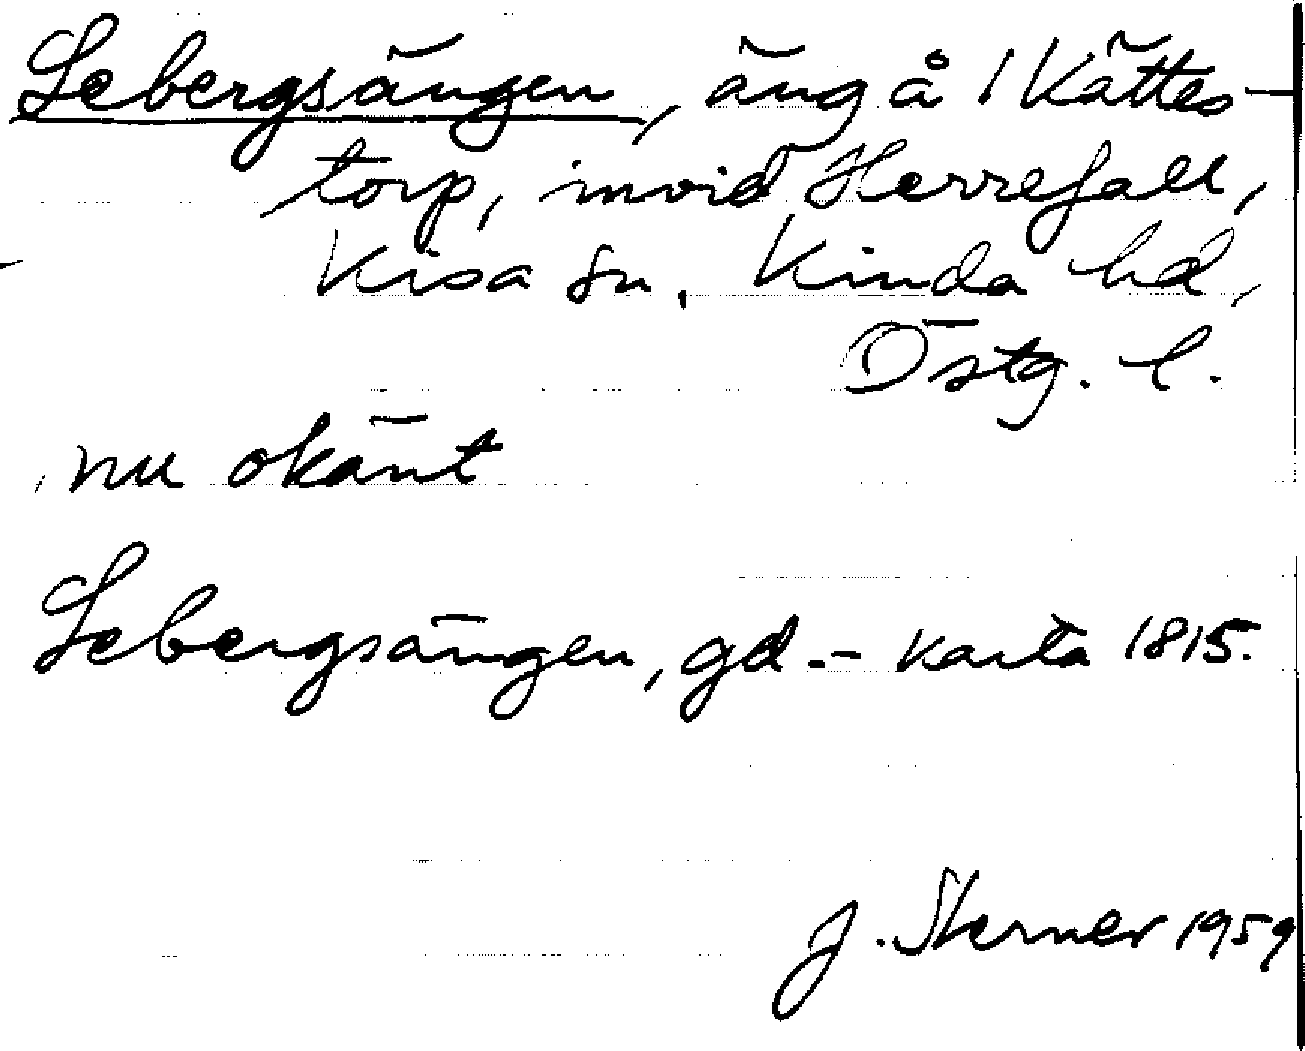 Lebergsängen, äng å 1 Kättes-
torp, invid Herrefall,
Kisa sn, Kinda hd,
Östg. l.
nu okänt
Lebergsängen, gd.- karta 1815.
J. Sterner 1959